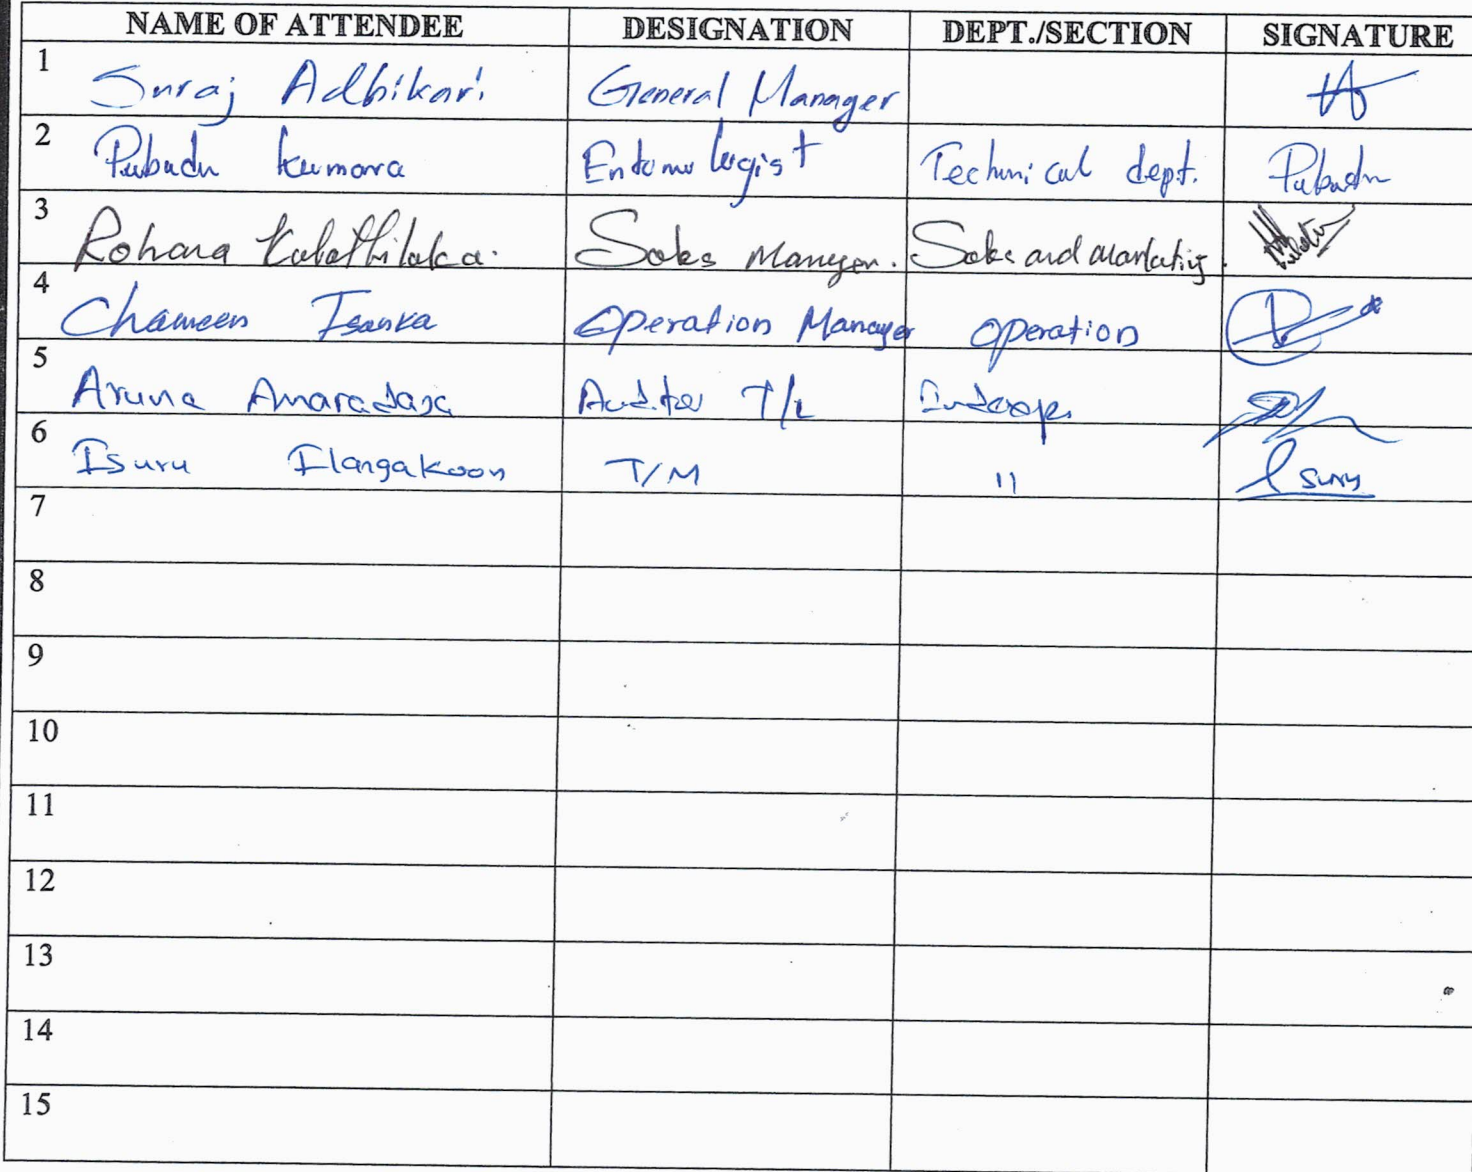 NAME OF ATTENDEE DESIGNATION DEPT./SECTION SIGNATURE
1 Suraj Adhikari General Manager
2 Pubudu Kumara Entomologist Technical dept. Pubudu
3 Rohana Kulathilaka. Sales Manager. Sales and Marketing.
4 Chameen Isanka Operation Manager Operation
5 Aruna Amaradasa Auditor T/L
6 Isuru Ilangakoon T/M 11 Isuru
7
8
9
10
11
12
13
14
15